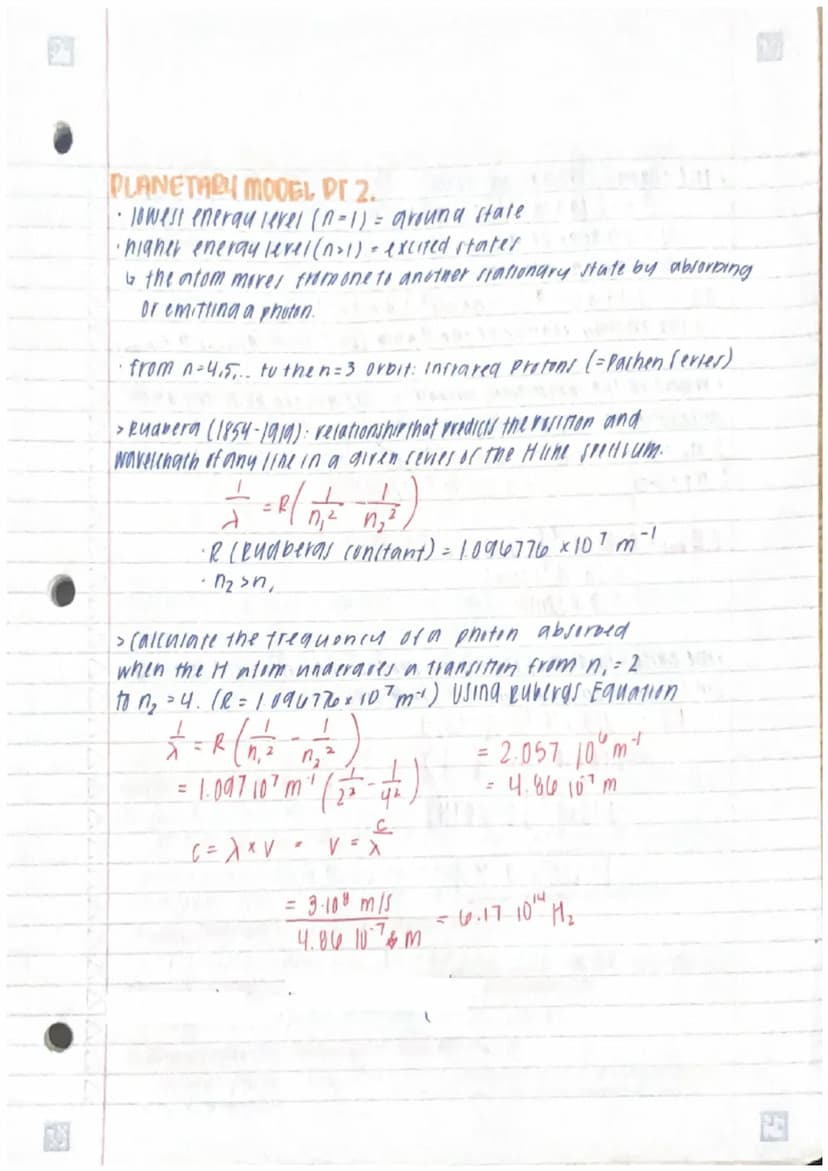 PLANETARY MODEL PT 2.
· lowest energy level (n=1) = ground state
· higher energy level (n>1) = excited states
↳ the atom moves from one to another stationary state by absorbing
or emitting a photon.
· from n=4,5,.. to the n=3 orbit: Infrared Protons (=Pachen Series)
> Rydberg (1854-1919): relationship that predicts the position and
wavelength of any line in a given series of the H line spectrum.
1/λ = R(1/n₁² - 1/n₂²)
· R (Rydbergs constant) = 1.096776 × 10⁷ m⁻¹
· n₂ > n₁
> Calculate the frequency of a photon absorbed
when the H atom undergoes a transition from n₁ = 2
to n₂ = 4. (R = 1.096776 × 10⁷ m⁻¹) Using Rubergs Equation
1/λ = R(1/n₁² - 1/n₂²) = 2.057 10⁶ m⁻¹
= 1.097 10⁷ m⁻¹ (1/2² - 1/4²) = 4.86 10⁻⁷ m
c = λ × v = v = c/λ
= 3·10⁸ m/s / 4.86 10⁻⁷ m = 6.17 10¹⁴ Hz